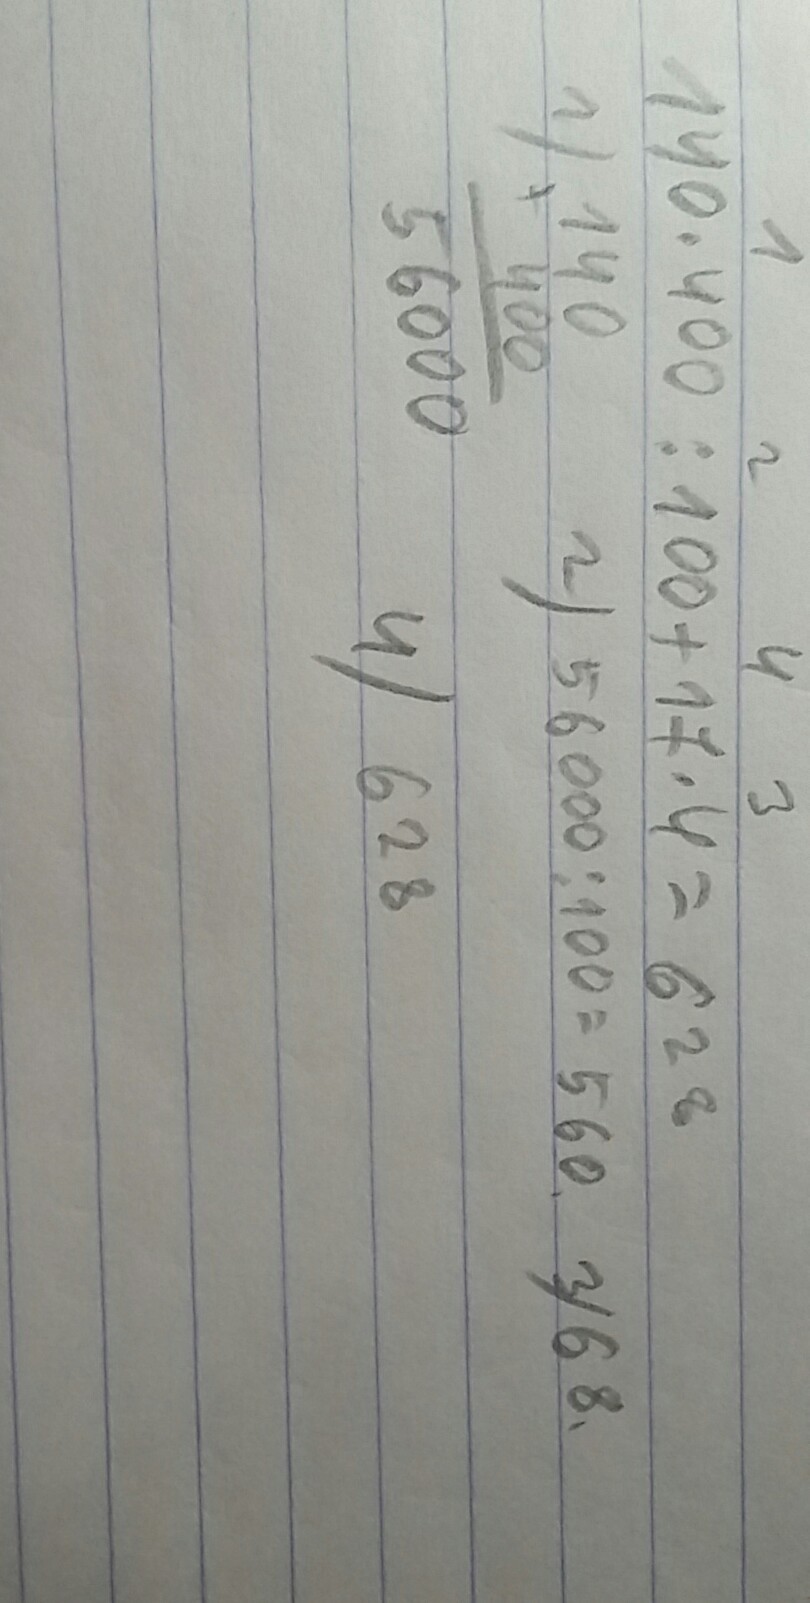 1 2 4 3
140.400:100+17.4=628
1) 140 2) 56000:100=560. 3) 68.
× 400
56000 4) 628